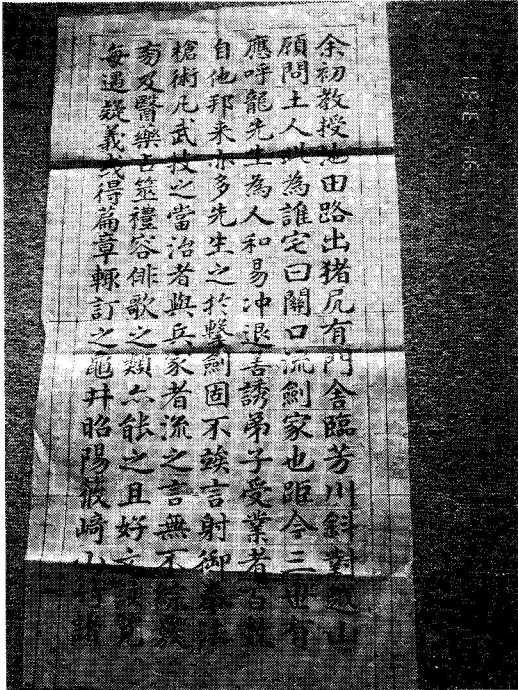 余初教授池田路出猪尻有門舎臨芳川斜對山
顧問土人此為誰宅曰關口流劍家也距今三世有
應呼龍先生為人和易冲退善誘弟子受業者百數
自他邦来亦多先生之於擊劍固不竢言射御拳法
槍術凡武技之當治者與兵家者流之言無不綜覈
旁及醫樂占筮禮容俳歌之類亦能之且好文覽
每過疑義或得篇章輙訂之龜井昭陽篠崎小竹諸